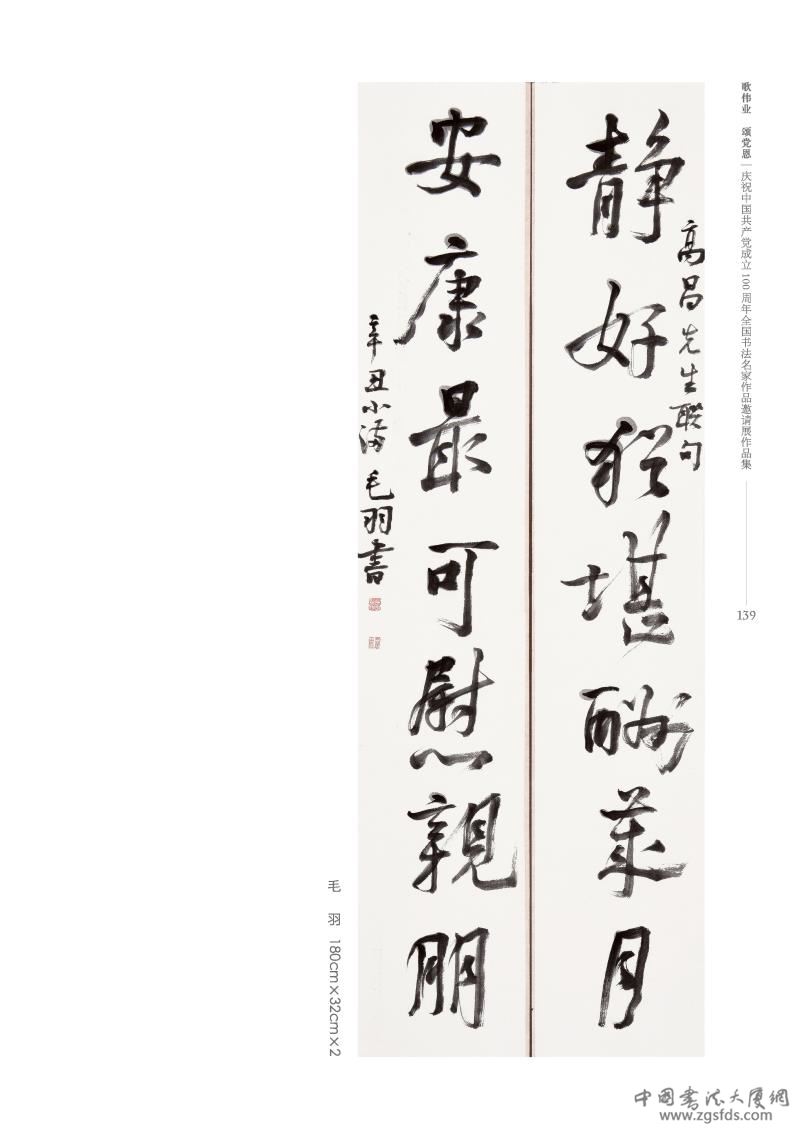 歌伟业 颂党恩 | 庆祝中国共产党成立 100 周年全国书法名家作品邀请展作品集
139
高昌先生聯句
静好猶堪酬歲月
安康最可慰親朋
辛丑小满 毛羽書
毛 羽 180cm×32cm×2
中国書法大厦網
www.zgsfds.com